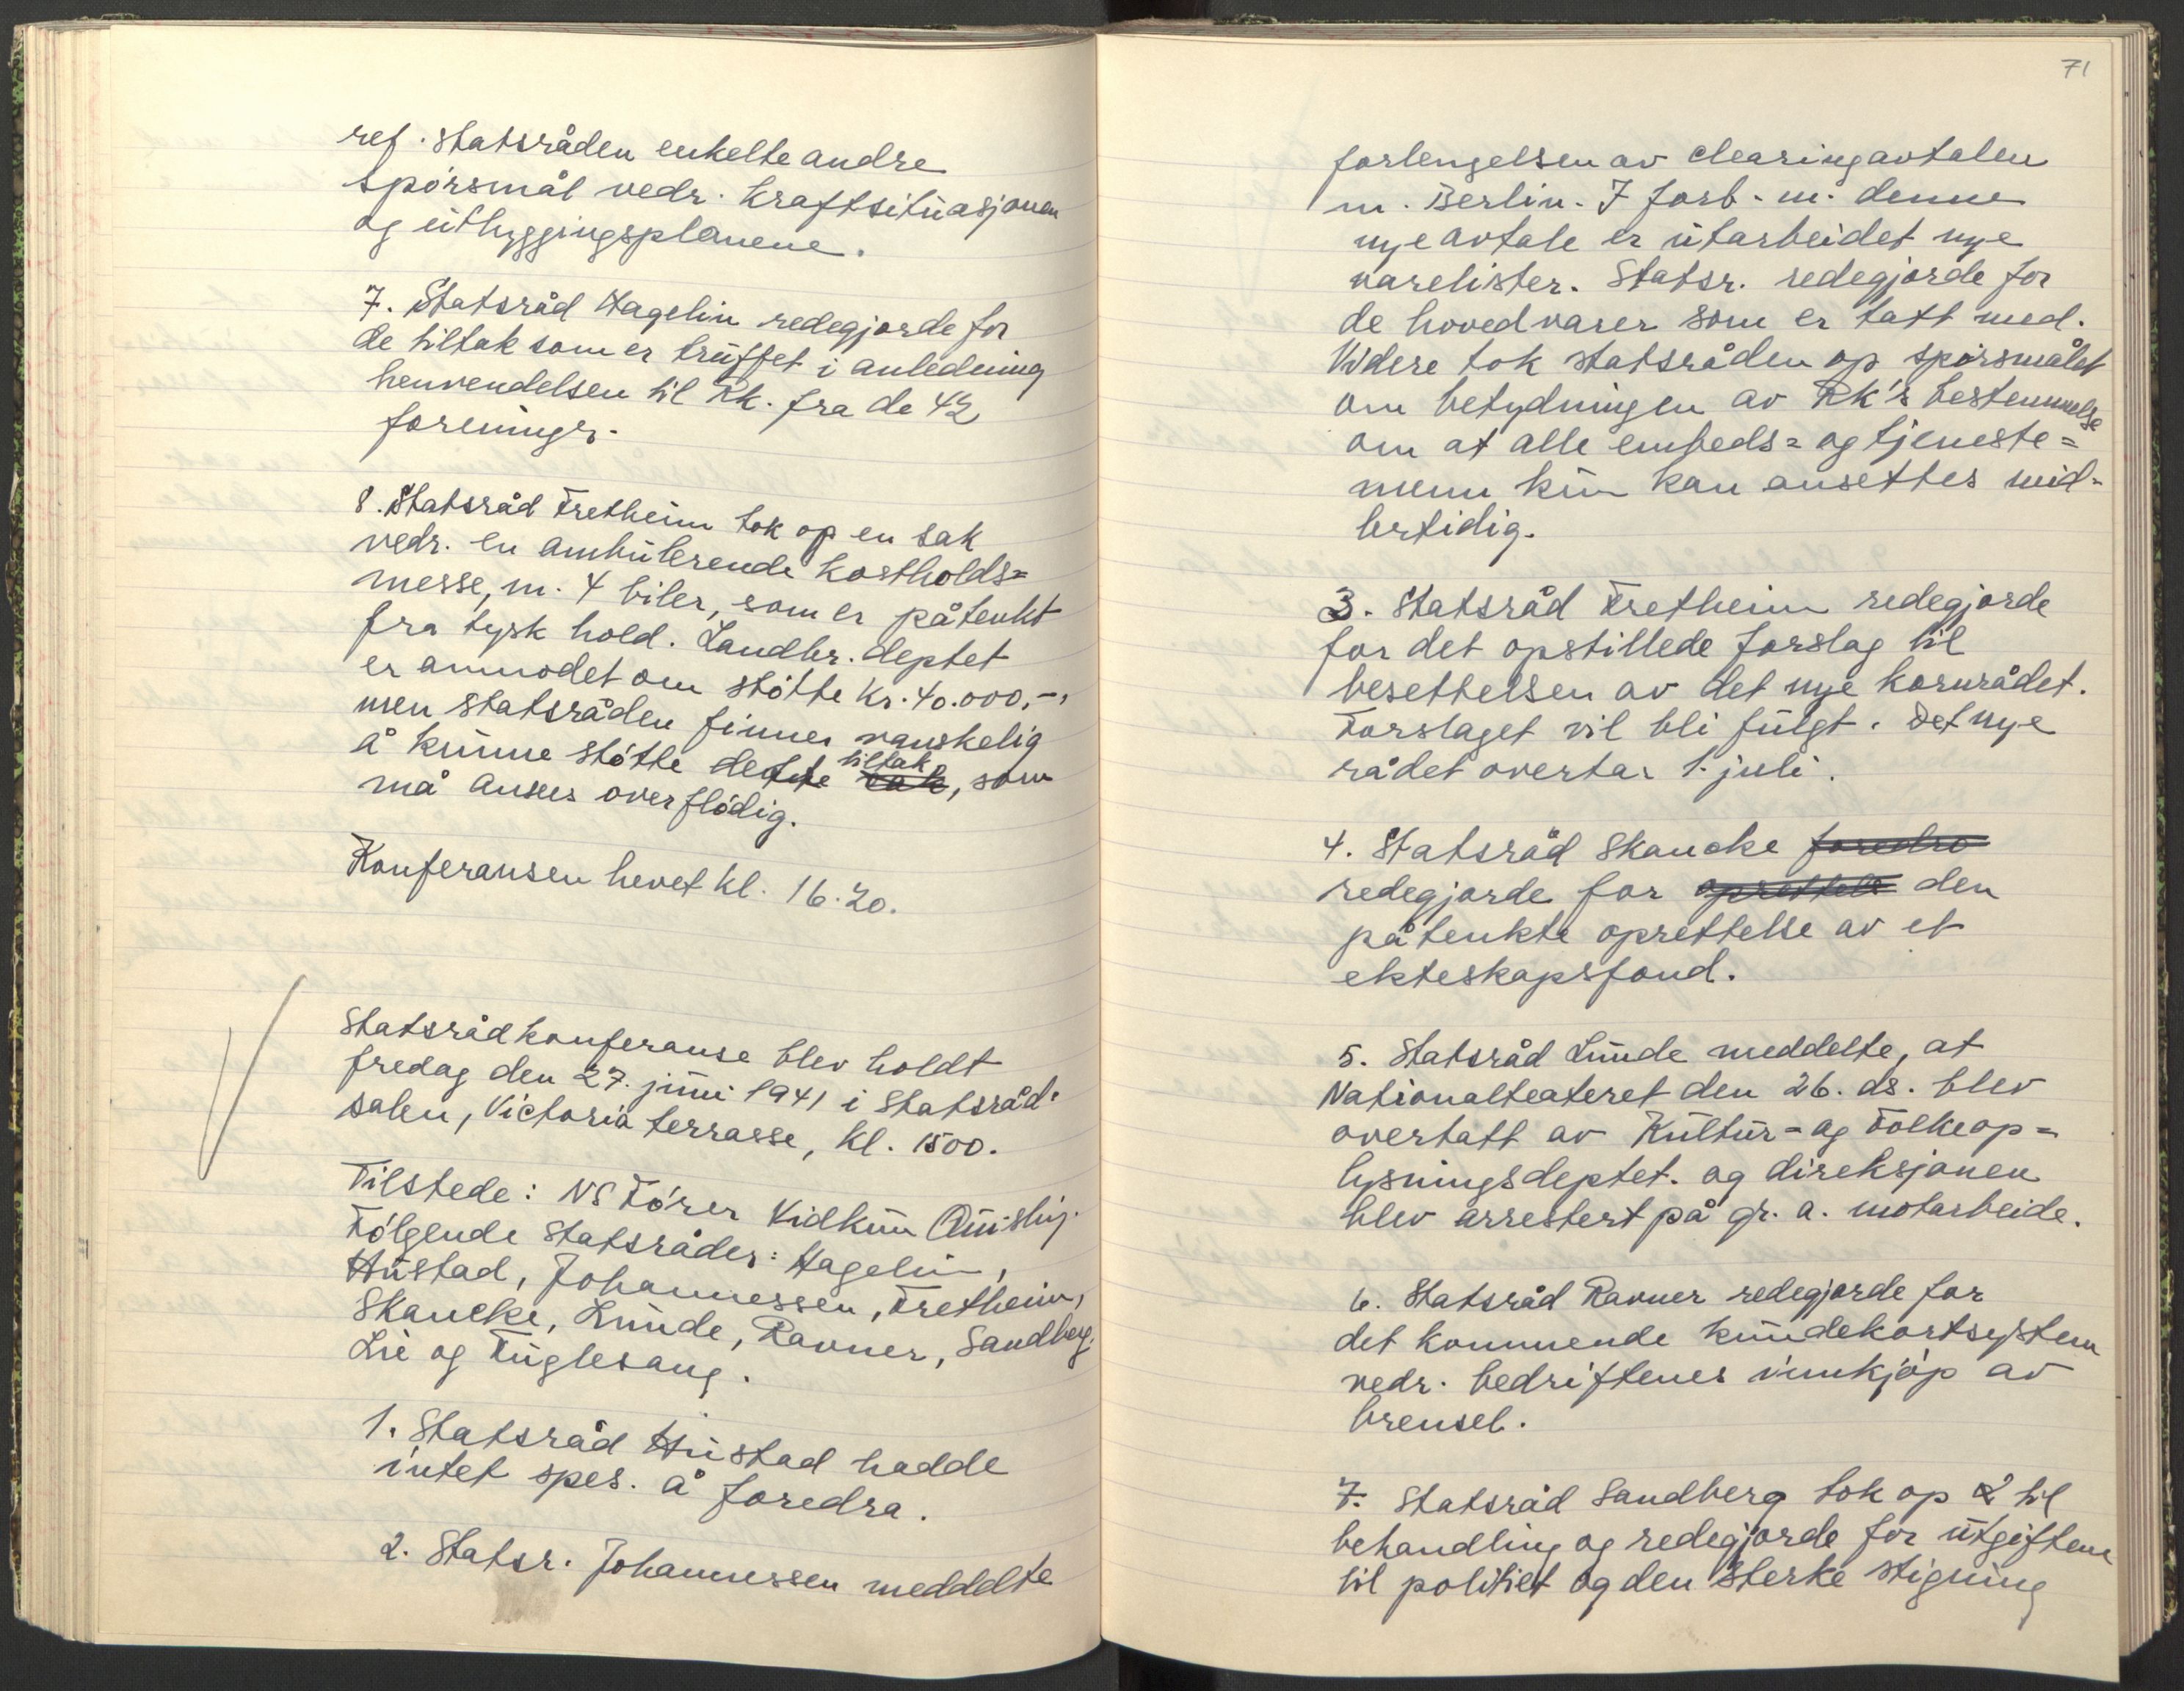 ref. statsråden enkelte andre
spörsmål vedr. kraftsituasjonen
og utbyggingsplanene.
7. Statsråd Hagelin redegjorde for
de tiltak som er truffet i anledning
henvendelsen til RK. fra de 43
foreninger.
8. Statsråd Fretheim tok op en sak
vedr. en ambulerende kostholds=
messe, m. 4 biler, som er påtenkt
fra tysk hold. Landbr. deptet
er anmodet om stötte kr. 40.000,-,
men statsråden finner vanskelig
å kunne stötte dette sak tiltak, som
må ansees overflödig.
Konferansen hevet kl. 16.20.
Statsrådkonferanse blev holdt
fredag den 27. juni 1941 i Statsråd-
salen, Victoria terrasse, kl. 1500.
Tilstede: NS Förer Vidkun Quisling.
Fölgende statsråder: Hagelin,
Hustad, Johannessen, Fretheim,
Skancke, Lunde, Ravner, Sandberg,
Lie og Fuglesang.
1. Statsråd Hustad hadde
intet spes. å foredra.
2. Statsr. Johannessen meddelte
71
forlengelsen av clearingavtalen
m. Berlin. I forb. m. denne
nye avtale er utarbeidet nye
varelister. Statsr. redegjorde for
de hovedvarer som er tatt med.
Videre tok statsråden op spörsmålet
om betydningen av RK's bestemmelse
om at alle embeds= og tjeneste=
menn kun kan ansettes mid-
lertidig.
3. Statsråd Fretheim redegjorde
for det opstillede forslag til
besettelsen av det nye kornrådet.
Forslaget vil bli fulgt. Det nye
rådet overtar 1. juli.
4. Statsråd Skancke foredro
redegjorde for oprettels den
påtenkte oprettelse av et
ekteskapsfond.
5. Statsråd Lunde meddelte, at
Nationalteateret den 26. ds. blev
overtatt av Kultur= og Folkeop=
lysningsdeptet. og direksjonen
blev arrestert på gr. a. motarbeide.
6. Statsråd Ravner redegjorde for
det kommende kundekortsystem
vedr. bedriftenes innkjöp av
brensel.
7. Statsråd Sandberg tok op til
behandling og redegjorde for utgiftene
til politiet og den sterke stigning